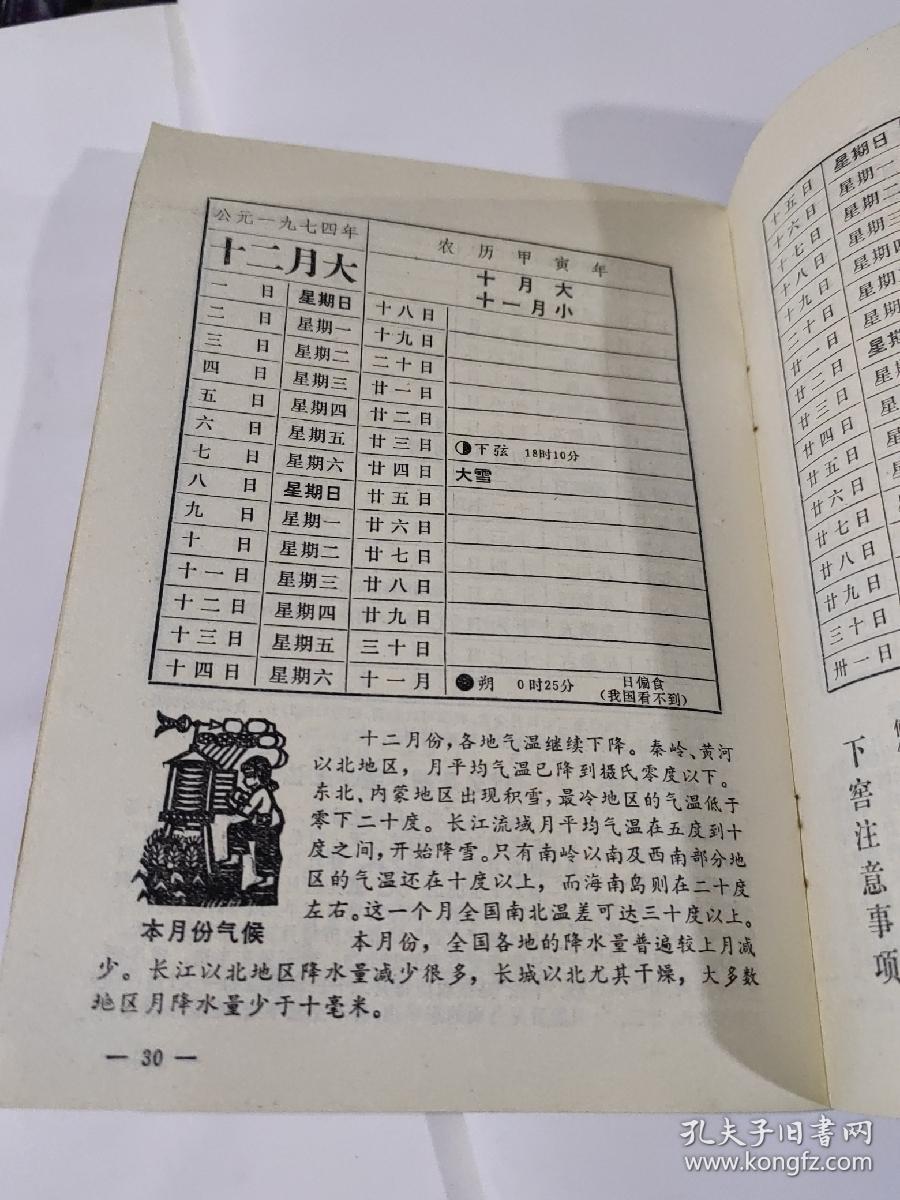 公元一九七四年 农历甲寅年
十二月大 十月大
十一月小
一日 星期日 十八日
二日 星期一 十九日
三日 星期二 二十日
四日 星期三 廿一日
五日 星期四 廿二日
六日 星期五 廿三日 下弦 18时10分
七日 星期六 廿四日 大雪
八日 星期日 廿五日
九日 星期一 廿六日
十日 星期二 廿七日
十一日 星期三 廿八日
十二日 星期四 廿九日
十三日 星期五 三十日
十四日 星期六 十一月 朔 0时25分 日偏食
(我国看不到)
十二月份,各地气温继续下降。秦岭、黄河
以北地区,月平均气温已降到摄氏零度以下。
东北、内蒙地区出现积雪,最冷地区的气温低于
零下二十度。长江流域月平均气温在五度到十
度之间,开始降雪。只有南岭以南及西南部分地
区的气温还在十度以上,而海南岛则在二十度
左右。这一个月全国南北温差可达三十度以上。
本月份气候
本月份,全国各地的降水量普遍较上月减
少。长江以北地区降水量减少很多,长城以北尤其干燥,大多数
地区月降水量少于十毫米。
— 30 —
十五日 星期日
十六日 星期一
十七日 星期二
十八日 星期三
十九日 星期四
二十日 星期
廿一日 星期
廿二日 星期
廿三日 星期
廿四日 星
廿五日 星
廿六日 星
廿七日 星
廿八日
廿九日
三十日
卅一日
下窖注意事项
孔夫子旧书网
www.kongfz.com